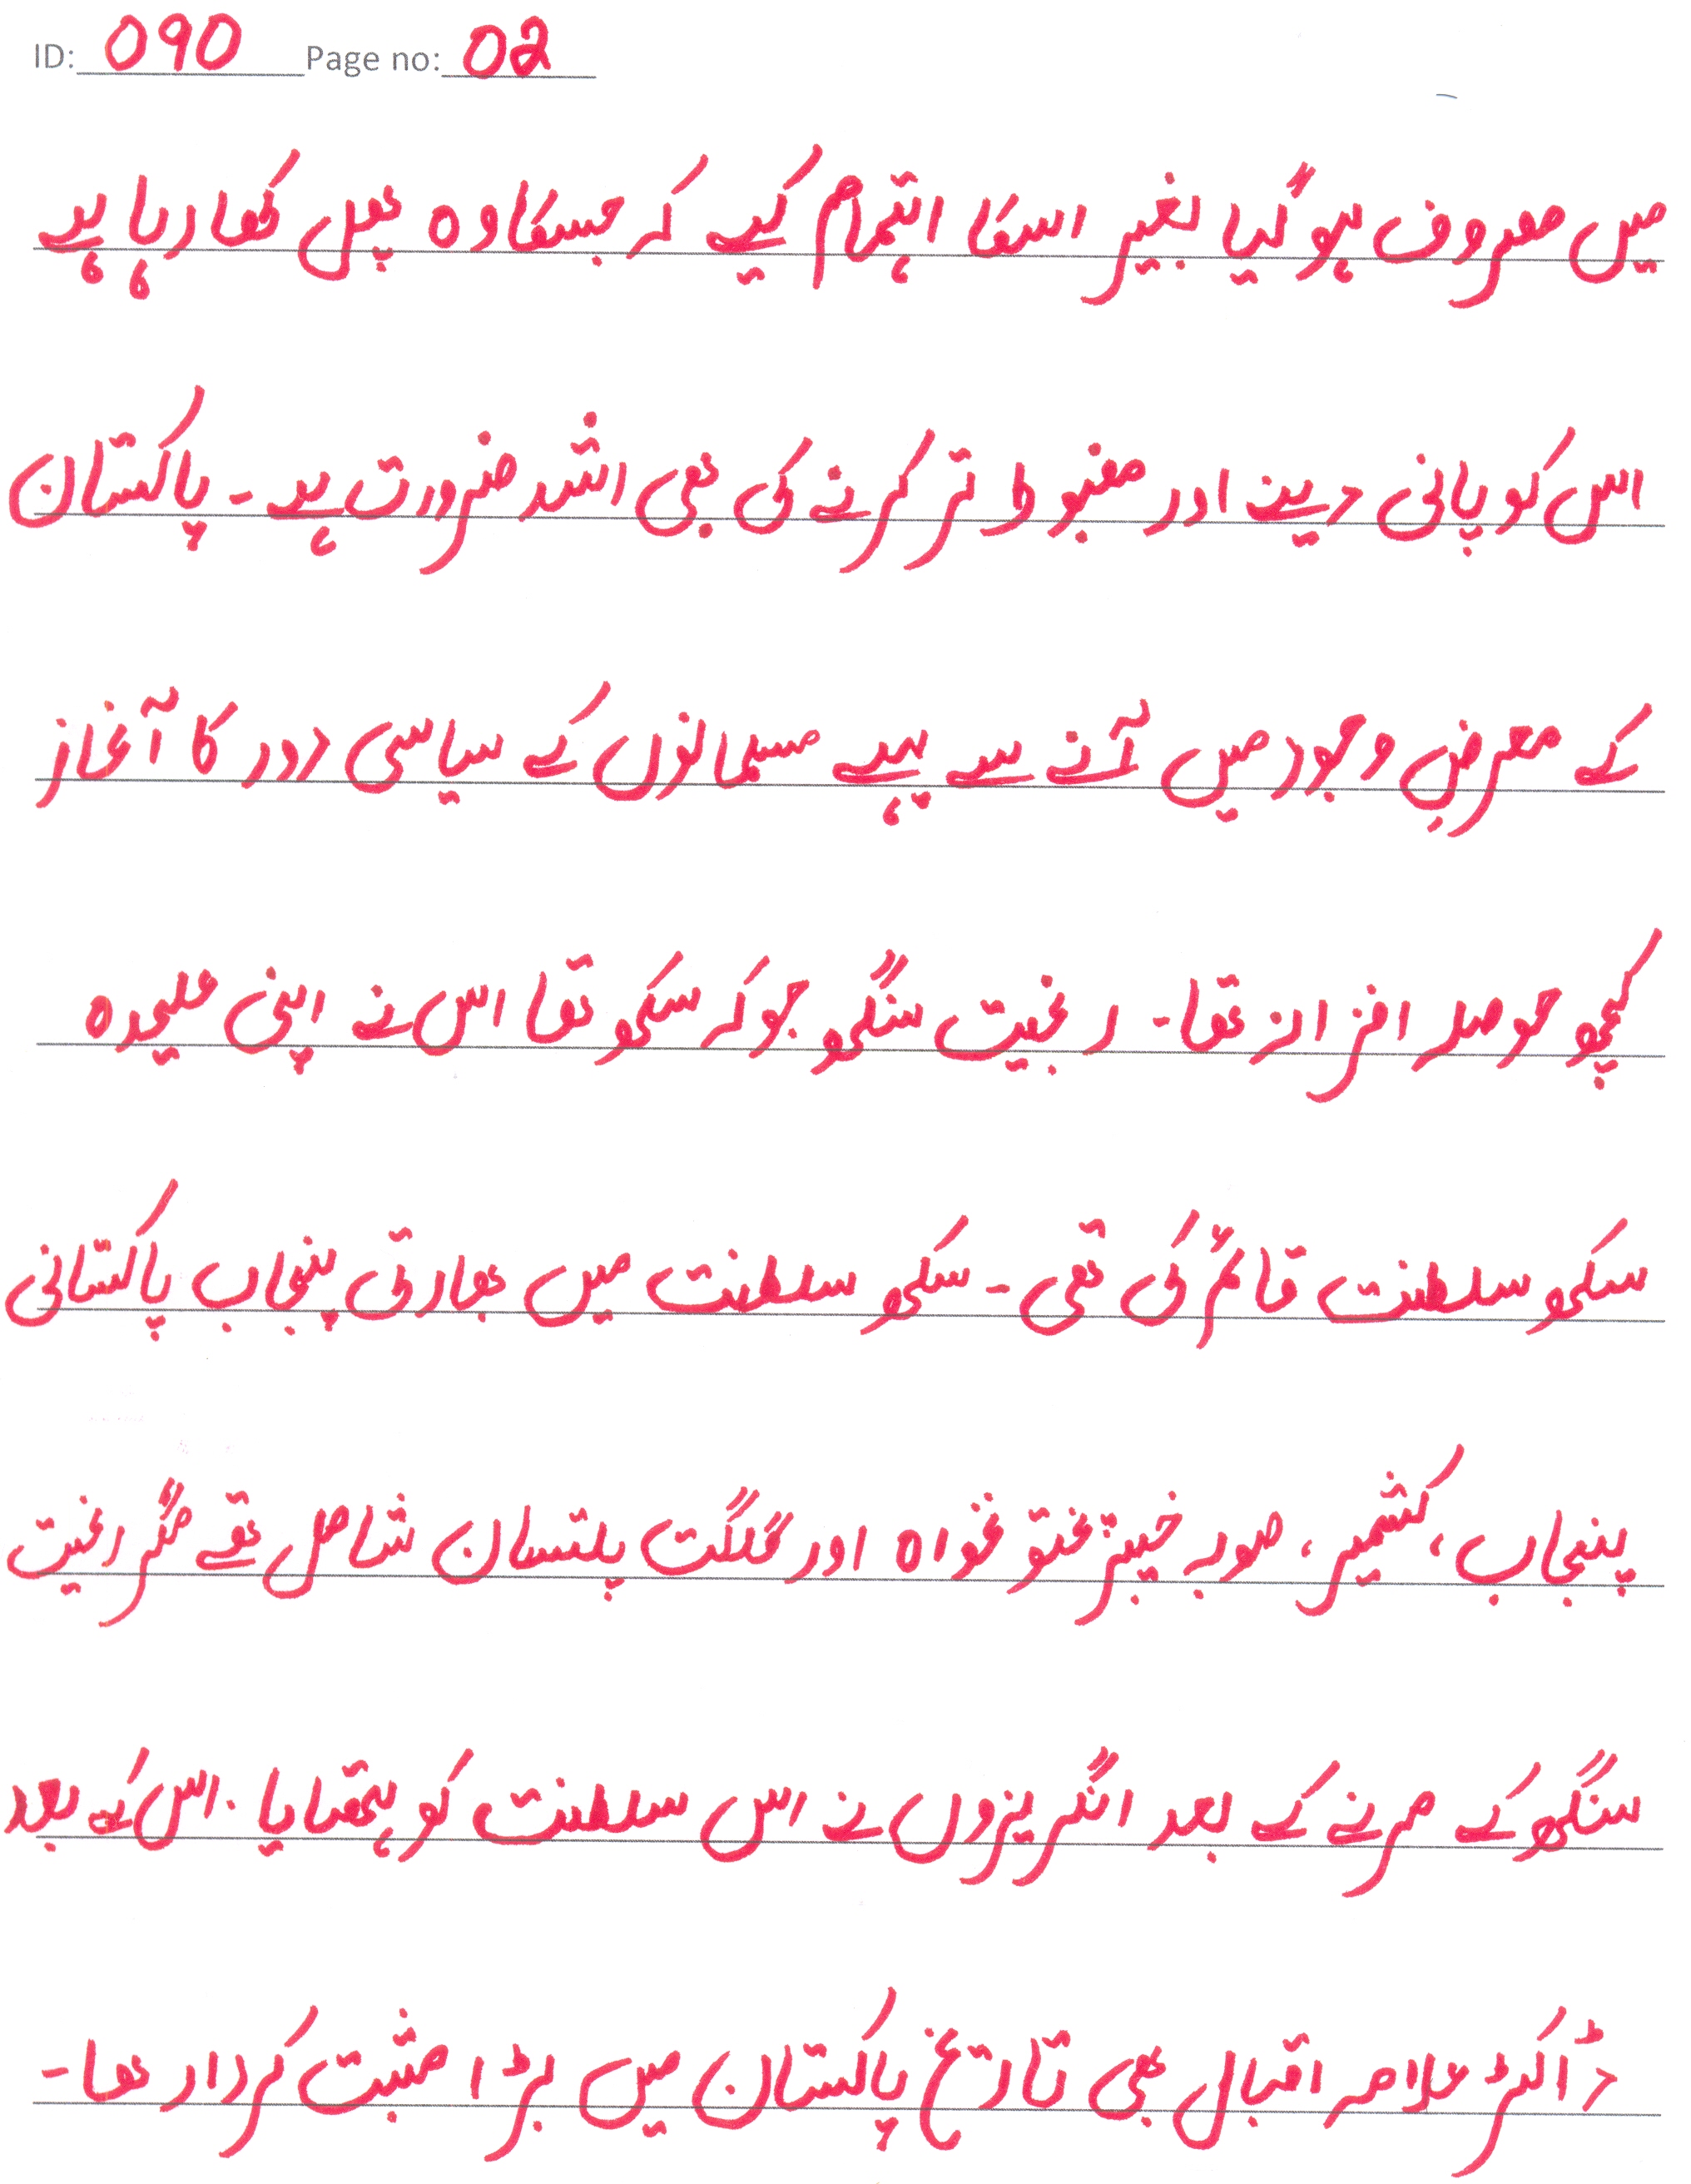 ID: 090 Page no: 02
میں معروف ہو گیا بغیر اسکا اہتمام کیے کہ جسکا وہ پھل کھا رہا ہے
اس کو پانی دینے اور مضبوط تر کرنے کی بھی اشد ضرورت ہے ۔ پاکستان
کے معرض وجود میں آنے سے پہلے مسلمانوں کے سیاسی دور کا آغاز
کچھ حوصلہ افزا نہ تھا ۔ رنجیت سنگھ جو کہ سکھ تھا اس نے اپنی علیحدہ
سکھ سلطنت قائم کی تھی ۔ سکھ سلطنت میں بھارتی پنجاب پاکستانی
پنجاب ، کشمیر ، صوبہ خیبر پختونخواہ اور گلگت بلتستان شامل تھے مگر رنجیت
سنگھ کے مرنے کے بعد انگریزوں نے اس سلطنت کو ہتھیایا ۔ اس کے بعد
ڈاکٹر علامہ اقبال بھی تاریخ پاکستان میں بڑا مثبت کردار تھا ۔